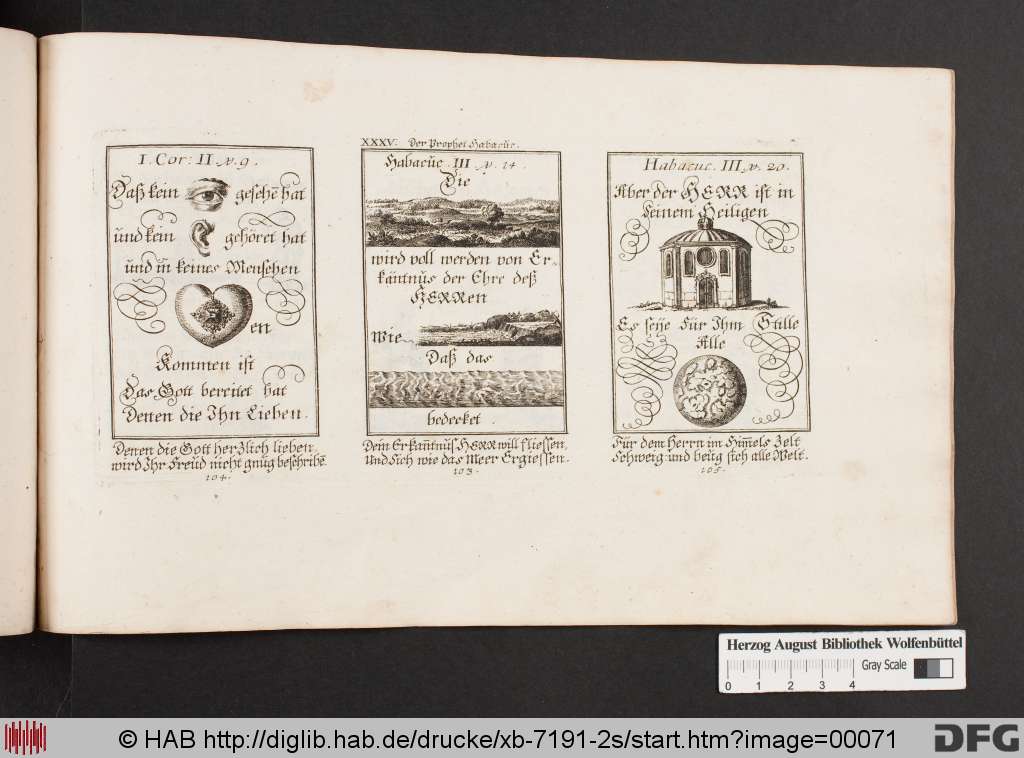 I. Cor: II. v. 9.
Daß kein gesehē hat
und kein gehöret hat
und in keines Menschen
en
Kommen ist
Das Gott bereitet hat
Denen die Ihn Lieben.
Denen die Gott herzlich lieben,
wird Ihr Freud nicht gnug beschribē.
104.
XXXV. Der Prophet Habacüc.
Habacüc. III. v. 14.
Die
wird voll werden von Er-
käntnüs der Ehre deß
HERRen
Wie
Daß das
bedecket.
Dein Erkan̄tnüs HERR will fliessen,
Und sich wie das Meer Ergiessen.
103.
Habacuc. III. v. 20.
Aber der HERR ist in
seinem Heiligen
Es seye Für Ihm Stille
Alle
Für dem Herrn im Him̄els Zelt
Schweig und beug sich alle Welt.
105.
Herzog August Bibliothek Wolfenbüttel
Gray Scale
0 1 2 3 4
© HAB http://diglib.hab.de/drucke/xb-7191-2s/start.htm?image=00071
DFG